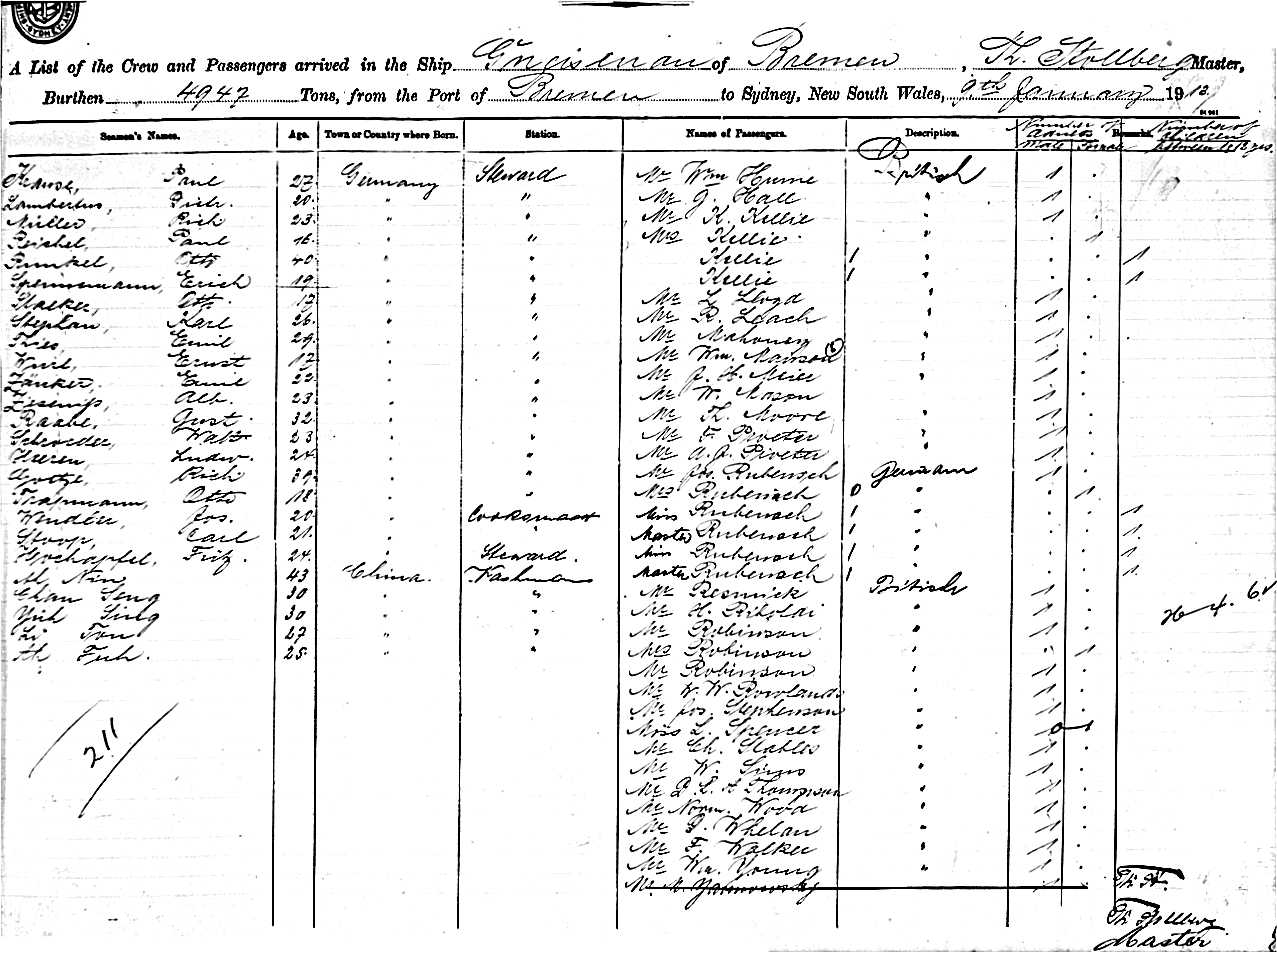 A List of the Crew and Passengers arrived in the Ship Gneisenau of Bremen, Th. Stollberg Master,
Burthen 4947 Tons, from the Port of Bremen to Sydney, New South Wales, 9th January 19
Seamen's Names. Age. Town or Country where Born. Station. Names of Passengers. Description. Number of Adults Male Female Remarks. Number of Children between 1 & 12 yrs.
Krause, Paul 27 Germany Steward Mr Wm Hume British 1
Lambertus, 20 " " Mr J. Hall " 1
Müller, Rich 23 " " Mr K. Killie " 1
Reichel, Paul 16 " " Mrs Killie " 1
Runkel, Otto 40 " " Killie 1 " 1
Erich 19 " " Killie 1 " 1
Otto 17 " " Mr L. Lloyd " 1
Stephan, Karl 26 " " Mr R. Leach " 1
Emil 29 " Mr Mahoney " 1
Ernst 17 " " Mr Wm. Manson " 1
Zänker, Emil 22 " " Mr J. H. Meier " 1
Alb. 23 " " Mr W. Mason 1
Raabe, Gust. 32 " " Mr Th. Moore " 1
Schroeder, Walt 23 " " Mr F. Procter " 1
Ludw. 24 " " Mr A. J. Procter " 1
Goetze, Rich 39 " " Mr Jos. Rubensach German 1
Trapmann, Otto 18 " " Mrs Rubensach 0 " 1
Wendler, Jos. 20 " Cooksmaat Miss Rubensach 1 " 1
Stoop, Carl 21 " " Master Rubensach 1 " 1
Hochapfel, Fritz. 24 " Steward. Miss Rubensach 1 " 1
Ah Nin 43 China. Washman Master Rubensach 1 " 1
Chan Seng 30 " " Mr Resnick British 1
Yuh Sing 30 " " Mr H. 1
Li Ton 27 " " Mr Robinson " 1
Ah Fuh. 25 " " Mrs Robinson " 1
Mr Robinson " 1
Mr W. W. Rowlands " 1
Mr Jos. Stephenson " 1
211
Miss L. Spencer " 1
Mr Ch. Stables " 1
Mr W. Sims " 1
Mr Thompson " 1
Mr Norm. Wood " 1
Mr P. Whelan " 1
Mr F. Walker " 1
Mr Wm. Young " 1
Mr M. 1
Th. St.
Th. Stollberg
Master